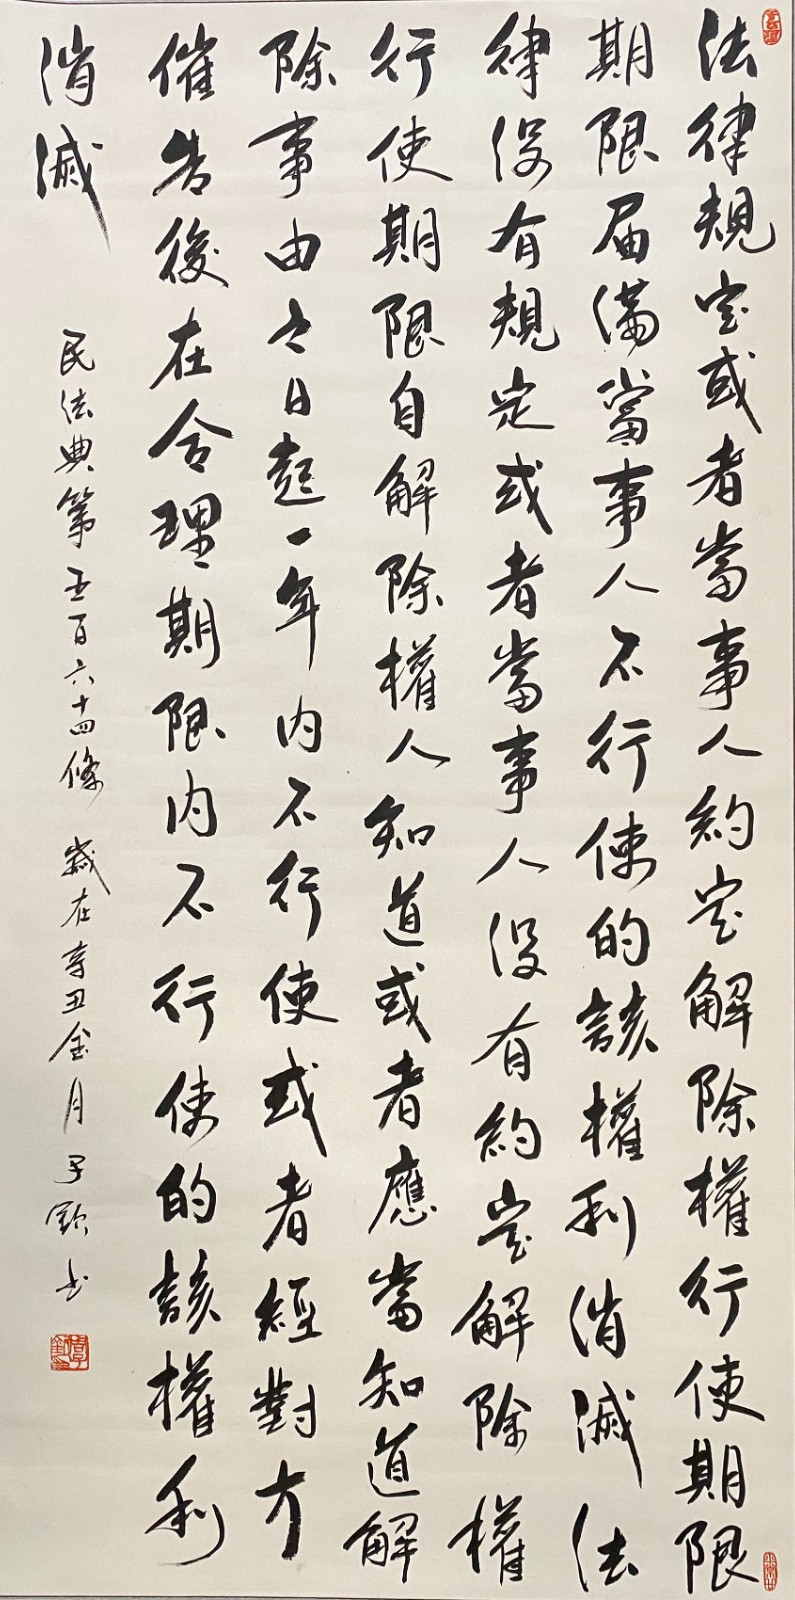 法律規定或者當事人約定解除權行使期限
期限届滿當事人不行使的該權利消滅法
律没有規定或者當事人没有約定解除權
行使期限自解除權人知道或者應當知道解
除事由之日起一年内不行使或者經對方
催告後在合理期限内不行使的該權利
消滅
民法典第五百六十四條 歲在辛丑金月子 書